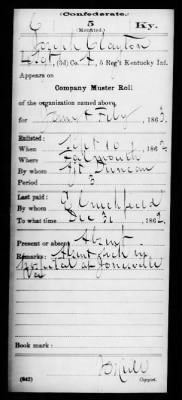 Confederate.
5 Ky.
(Mounted.)
Joseph Clayton
Co. A, 5 Reg't Kentucky Inf.
Appears on
Company Muster Roll
of the organization named above,
for Jany & Feby, 1863.
Enlisted:
When Sept 10, 1862
Where Falmouth
By whom Duncan
Period 3
Last paid:
By whom Crutchfield
To what time Dec 31, 1862
Present or absent Absent
Remarks: Absent sick in
Hospital at Jonesville
Va
Book mark:
(642) Copyist.